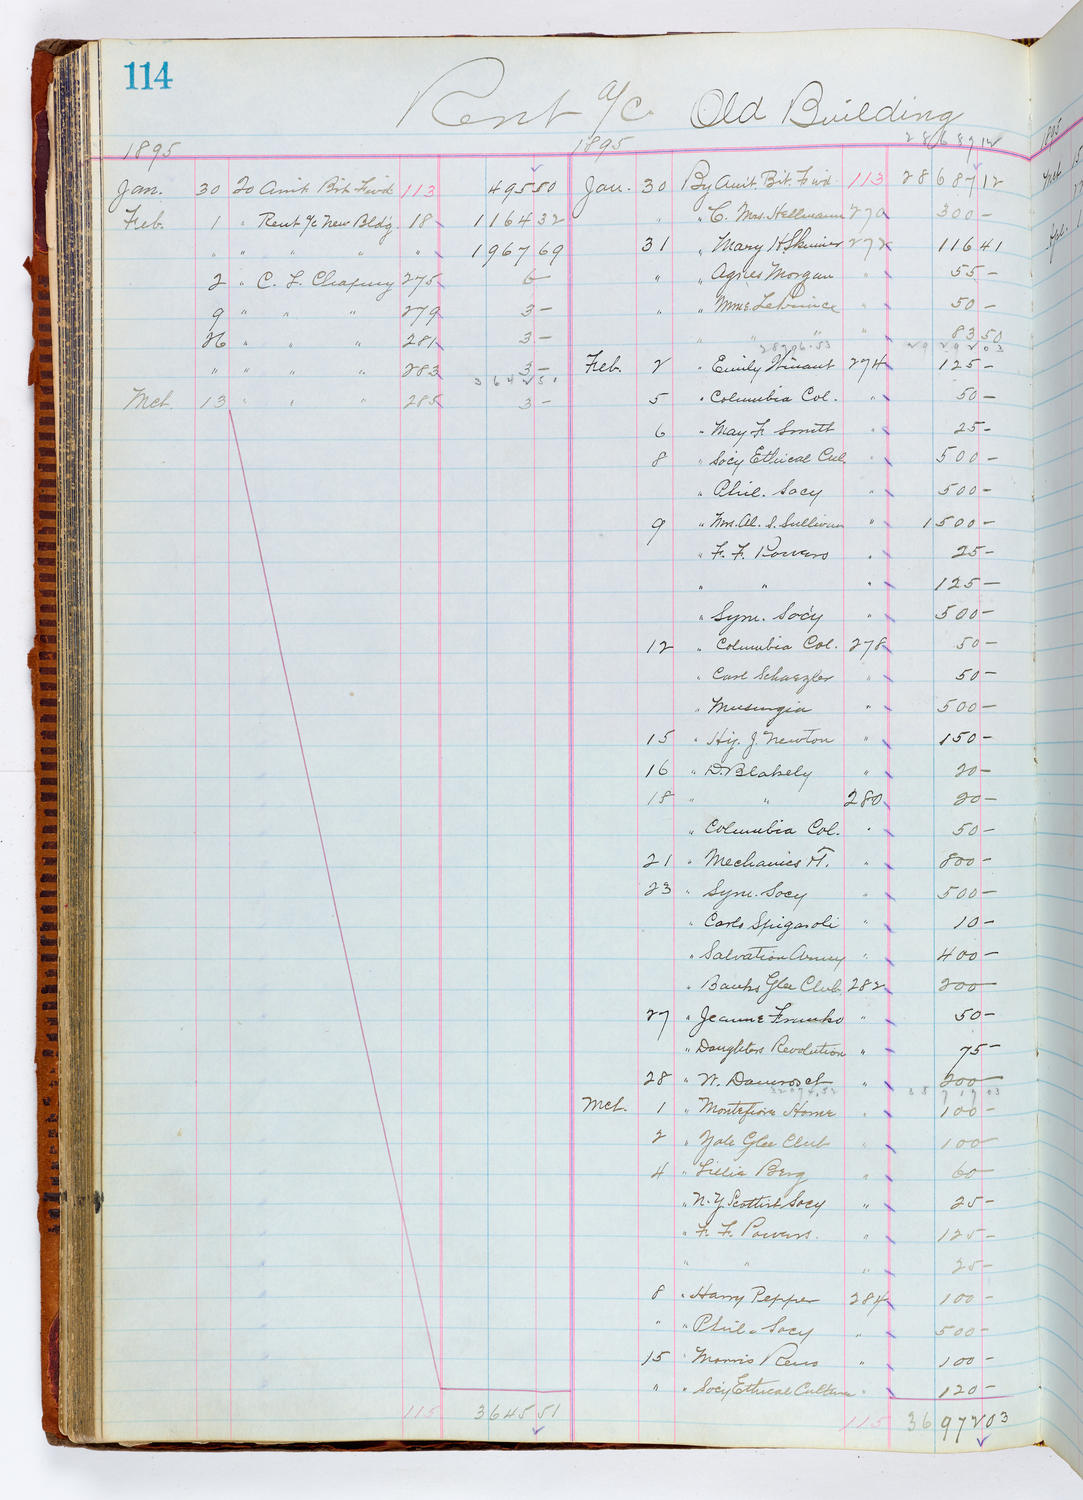 114
Rent a/c Old Building
1895
Jan. 30 To Amt Brt Fwd 113 495 50
Feb. 1 " Rent a/c New Bldg. 18 1164 32
" " " " " " 1967 69
2 " C. L. 275 6 -
9 " " " 279 3 -
26 " " " 281 3 -
" " " " 283 3 -
3645 51
Mch. 13 " " " 285 3 -
115 3645 51
1895 28687 12
Jan. 30 By Amt. Bt. Fwd. 113 28687 12
" " C. Mrs. Hellmann 270 300 -
31 " Mary H. Skinner 272 1164 1
" " Agnes Morgan " 55 -
" " Mme. " 50 -
" " " " 83 50
28706.53 29 29 203
Feb. 2 " Emily Winant 274 125 -
5 " Columbia Col. " 50 -
6 " May F. Smith " 25 -
8 " Soc'y Ethical Cul. " 500 -
" Phil. Socy " 500 -
9 " Mrs. Al. S. Sullivan " 1500 -
" F. F. Powers " 25 -
" " " 125 -
" Sym. Soc'y " 500 -
12 " Columbia Col. 278 50 -
" Carl Schaezler " 50 -
" Musurgia " 500 -
15 " Hy. J. Newton " 150 -
16 " D. Blakely " 20 -
18 " " 280 20 -
" Columbia Col. " 50 -
21 " Mechanics " 800 -
23 " Sym. Socy " 500 -
" Carlo Spigaroli " 10 -
" Salvation Army " 400 -
" Banks Glee Club 282 200 -
27 " Jeanne Franko " 50 -
" Daughters Revolution " 75 -
28 " W. Damrosch " 200 -
Mch. 1 " Montefiore Home " 100 -
2 " Yale Glee Club " 100 -
4 " Lillie Berg " 60 -
" N. Y. Scottish Socy " 25 -
" F. F. Powers. " 125 -
" " " 25 -
8 " Harry Pepper 284 100 -
" " Phil. Socy " 500 -
15 " Morris Reno " 100 -
" " Soc'y Ethical Culture " 120 -
115 36972 03